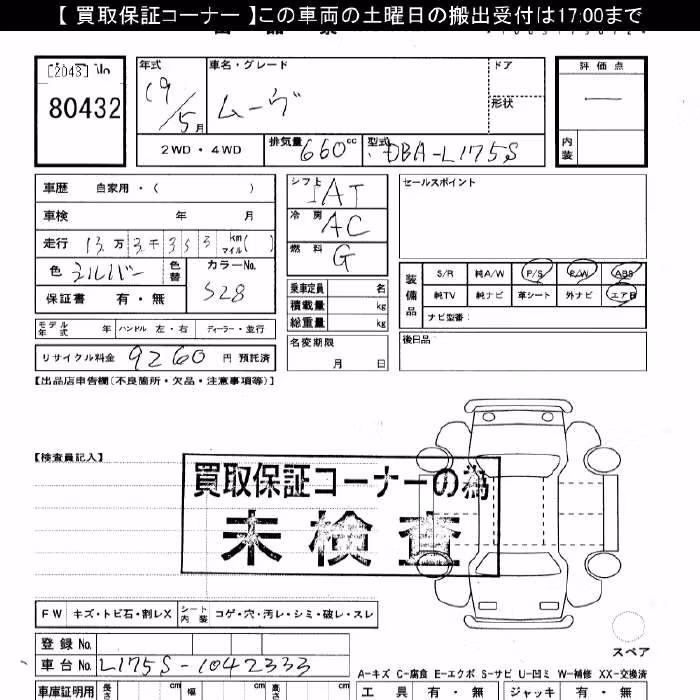 【 買取保証コーナー 】この車両の土曜日の搬出受付は17:00まで
80432
年式 19/5月
車名・グレード ムーヴ
ドア
形状
評価点 —
内装
2WD・4WD
排気量 660cc
型式 DBA-L175S
車歴 自家用・( )
車検 年 月
走行 13万3千353km マイル( )
色 シルバー 色替
カラーNo. S28
保証書 有・無
シフト IAT
冷房 AC
燃料 G
乗車定員 名
積載量 kg
総重量 kg
セールスポイント
装備品
S/R 純A/W P/S P/W ABS
純TV 純ナビ 革シート 外ナビ エアB
ナビ型番:
モデル年式 年 ハンドル 左・右 ディーラー・並行
名変期限 月 日
後日品
リサイクル料金 9260円 預託済
【出品店申告欄(不良箇所・欠品・注意事項等)】
【検査員記入】
買取保証コーナーの為
未検査
FW キズ・トビ石・割レX シート内装 コゲ・穴・汚レ・シミ・破レ・スレ
スペア
登録No.
車台No. L175S-1042333
A-キズ C-腐食 E-エクボ S-サビ U-凹ミ W-補修 XX-交換済
車庫証明用 長さ cm 幅 cm 高さ cm
工具 有・無 ジャッキ 有・無